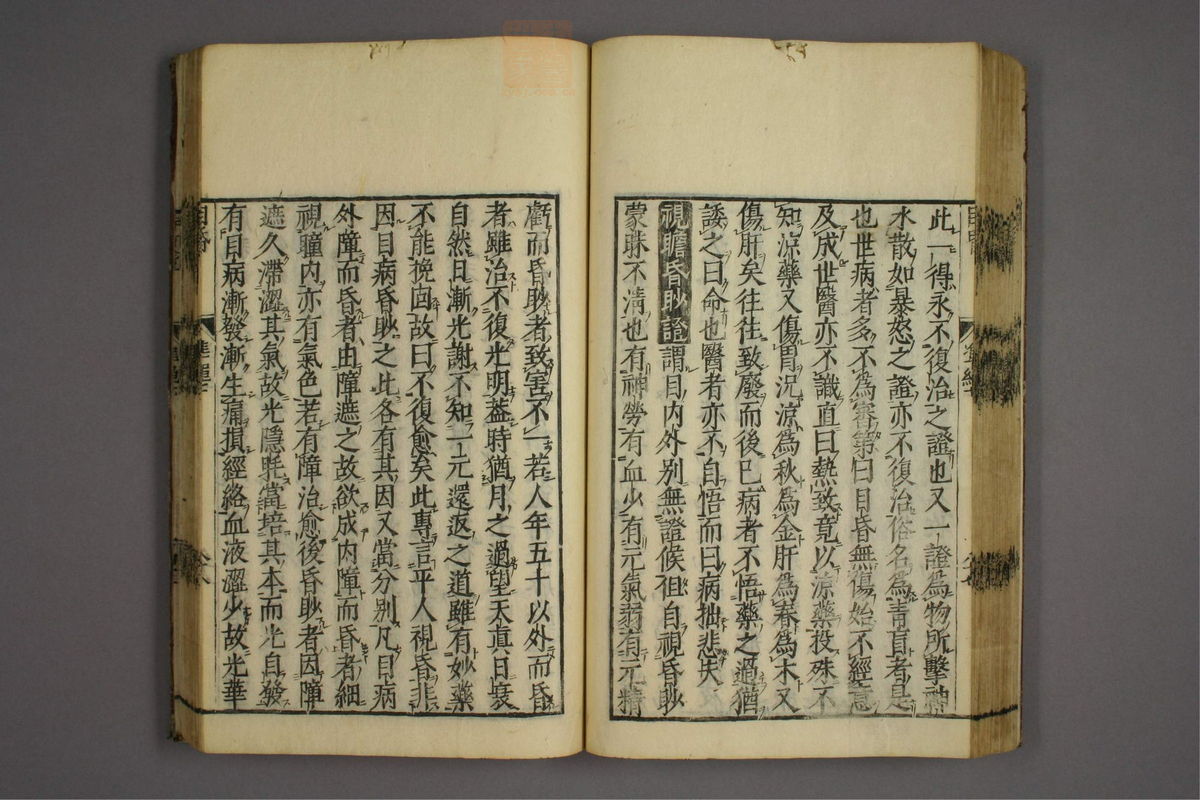 此一得永不復治之證也又一證為物所擊神
水散如暴怒之證亦不復治俗名為青盲者是
也世病者多不為審第曰目昏無傷始不經意
及成世醫亦不識直曰熱致竟以涼藥投殊不
知涼藥又傷胃況涼為秋為金肝為春為木又
傷肝矣往往致廢而後已病者不悟藥之過猶
諉之曰命也醫者亦不自悟而曰病拙悲夫
視瞻昏眇證謂目內外別無證候但自視昏眇
蒙昧不清也有神勞有血少有元氣弱有元精
虧而昏眇者致害不一若人年五十以外而昏
者雖治不復光明蓋時猶月之過望天真日衰
自然日漸光謝不知一元還返之道雖有妙藥
不能挽回故曰不復愈矣此專言平人視昏非
因目病昏眇之比各有其因又當分別凡目病
外障而昏者由障遮之故欲成內障而昏者細
視瞳內亦有氣色若有障治愈後昏眇者因障
遮久滯澀其氣故光隱眊當培其本而光自發
有目病漸發漸生痛損經絡血液澀少故光華